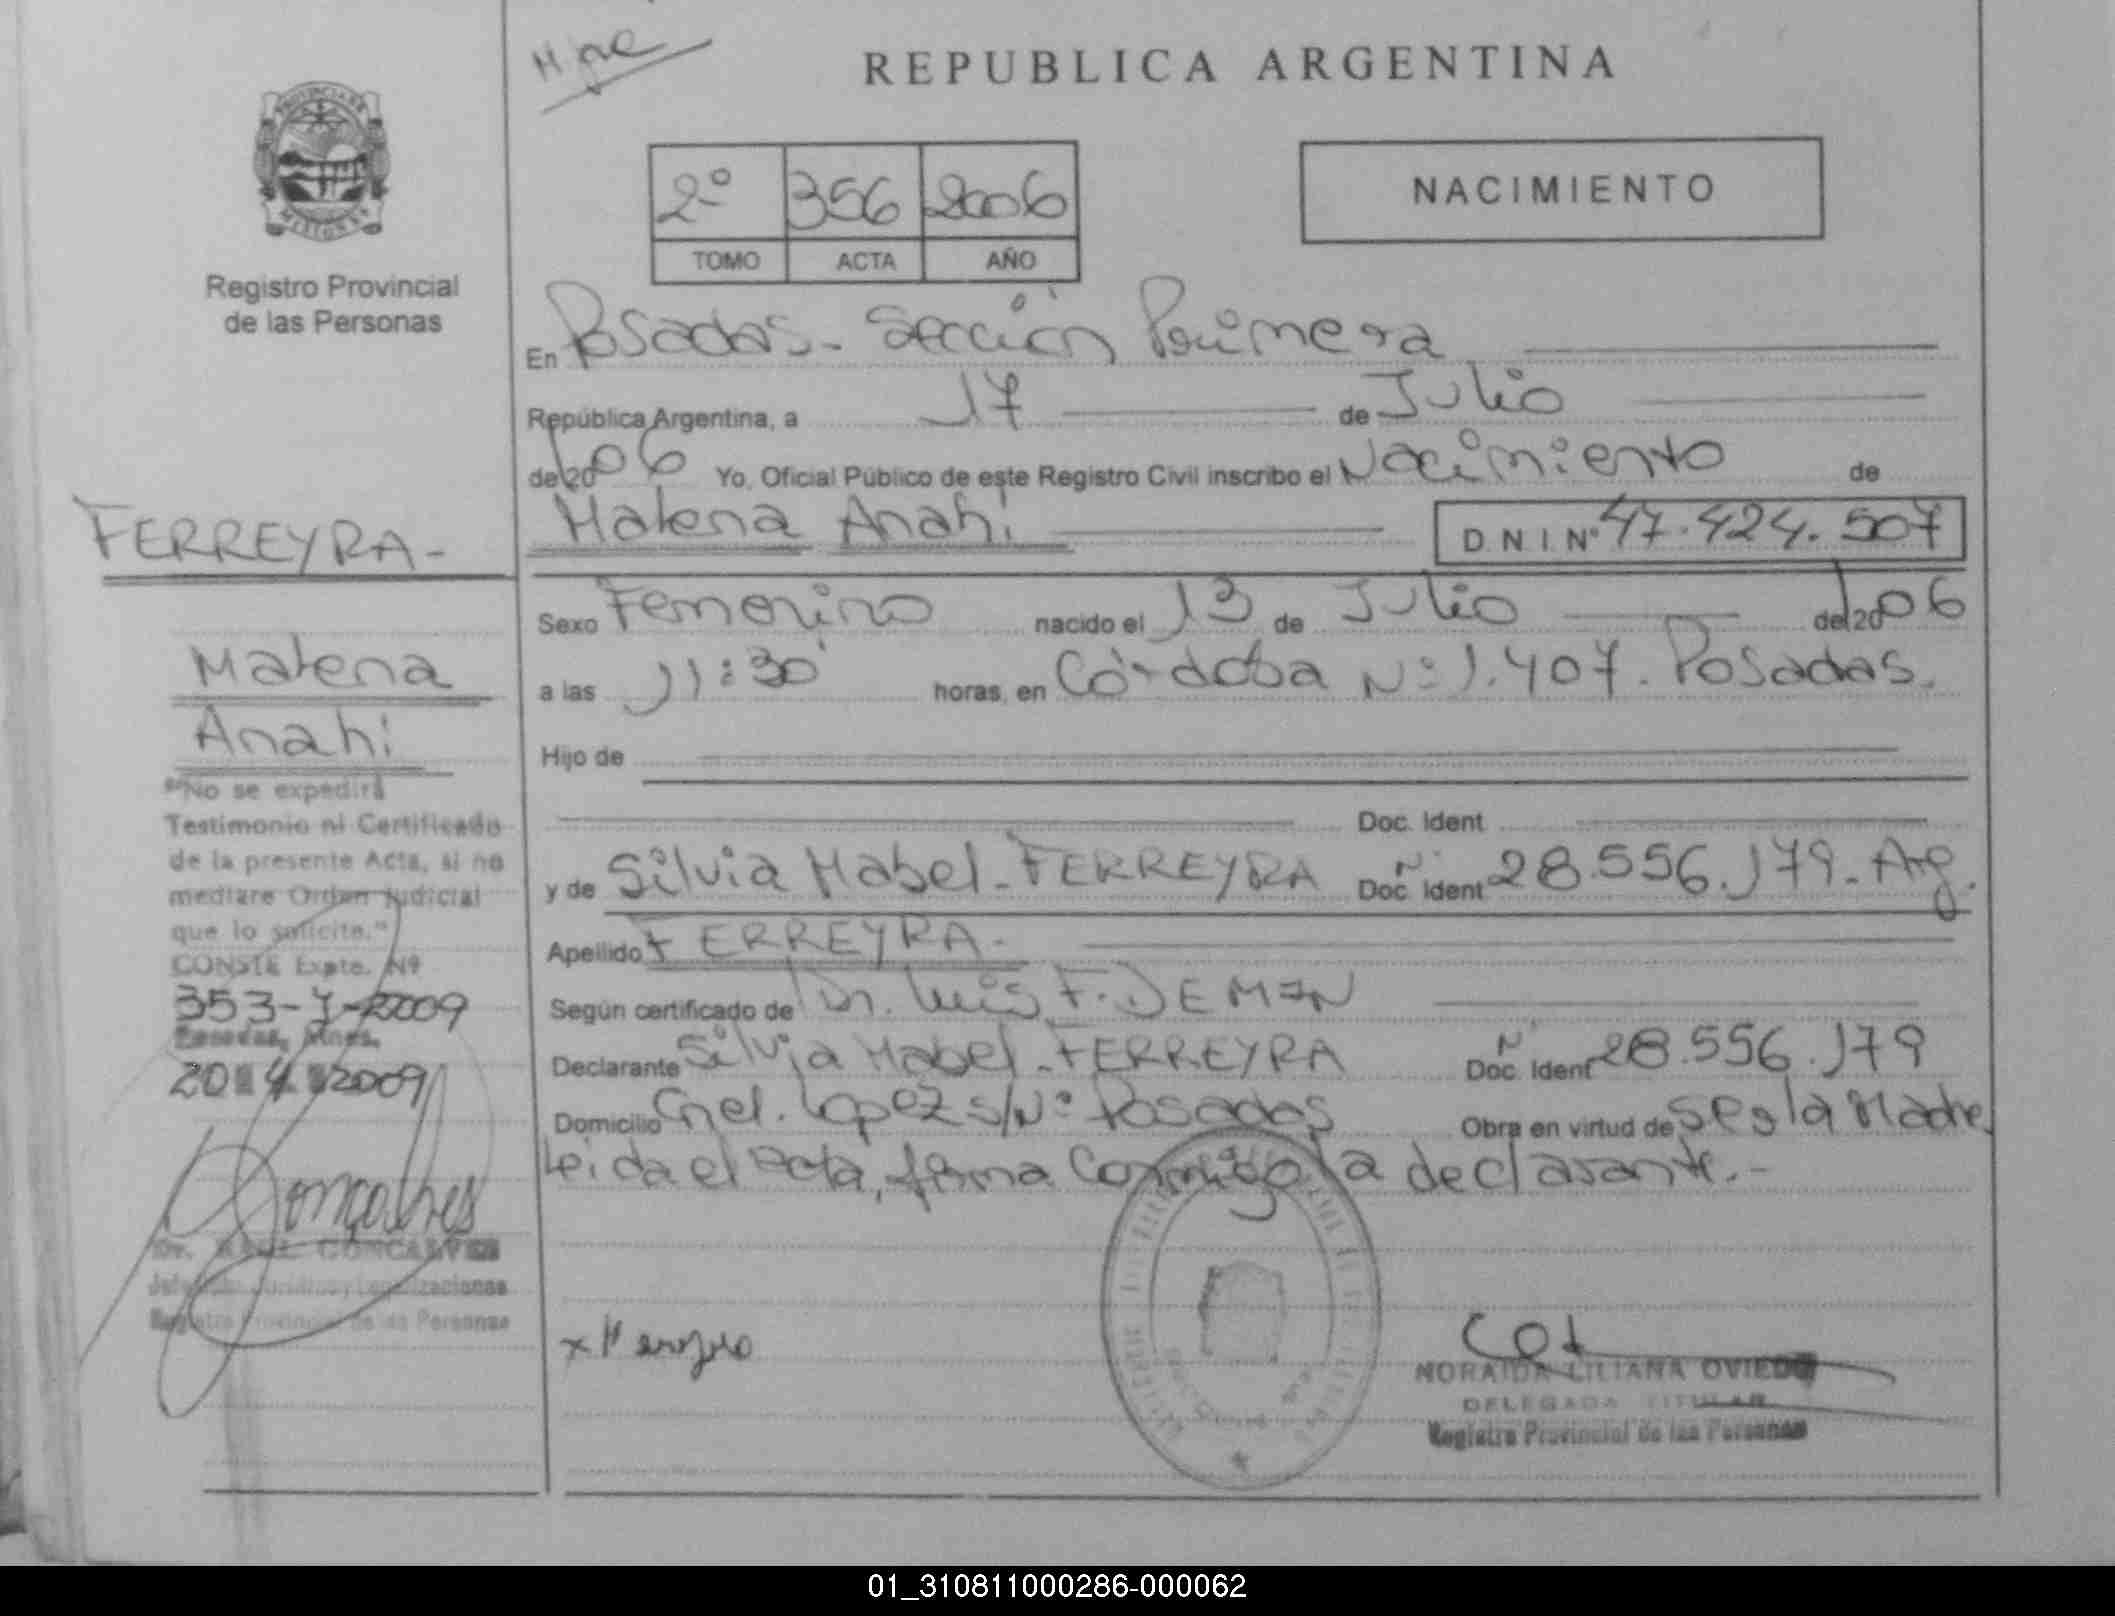 REPUBLICA ARGENTINA
NACIMIENTO
2º 356 2006
TOMO ACTA AÑO
Registro Provincial
de las Personas
En Posadas - Sección Primera
República Argentina, a 17 de Julio
de 2006 Yo, Oficial Público de este Registro Civil inscribo el Nacimiento de
Malena Anahi D.N.I. Nº 47.424.507
Sexo Femenino nacido el 13 de Julio de 2006
a las 11:30 horas, en Córdoba Nº 1.407. Posadas.
Hijo de
Doc. Ident
y de Silvia Mabel - FERREYRA Doc. Ident Nº 28.556.179 - Arg.
Apellido FERREYRA -
Según certificado de Dr. Luis F. DEMIN
Declarante Silvia Mabel - FERREYRA Doc. Ident Nº 28.556.179
Domicilio Cnel. Lopez s/Nº Posadas Obra en virtud de ser la Madre
Leida el Acta, firma Conmigo la declarante.-
NORAIDA LILIANA OVIEDO
DELEGADA TITULAR
Registro Provincial de las Personas
FERREYRA -
Malena
Anahi
"No se expedirá
Testimonio ni Certificado
de la presente Acta, si no
mediare Orden Judicial
que lo solicite."
CONSTE Expte. Nº
353-J-2009
Posadas, Mnes.
Gonçalves
GONCALVES
Registro Provincial de las Personas
01_310811000286-000062